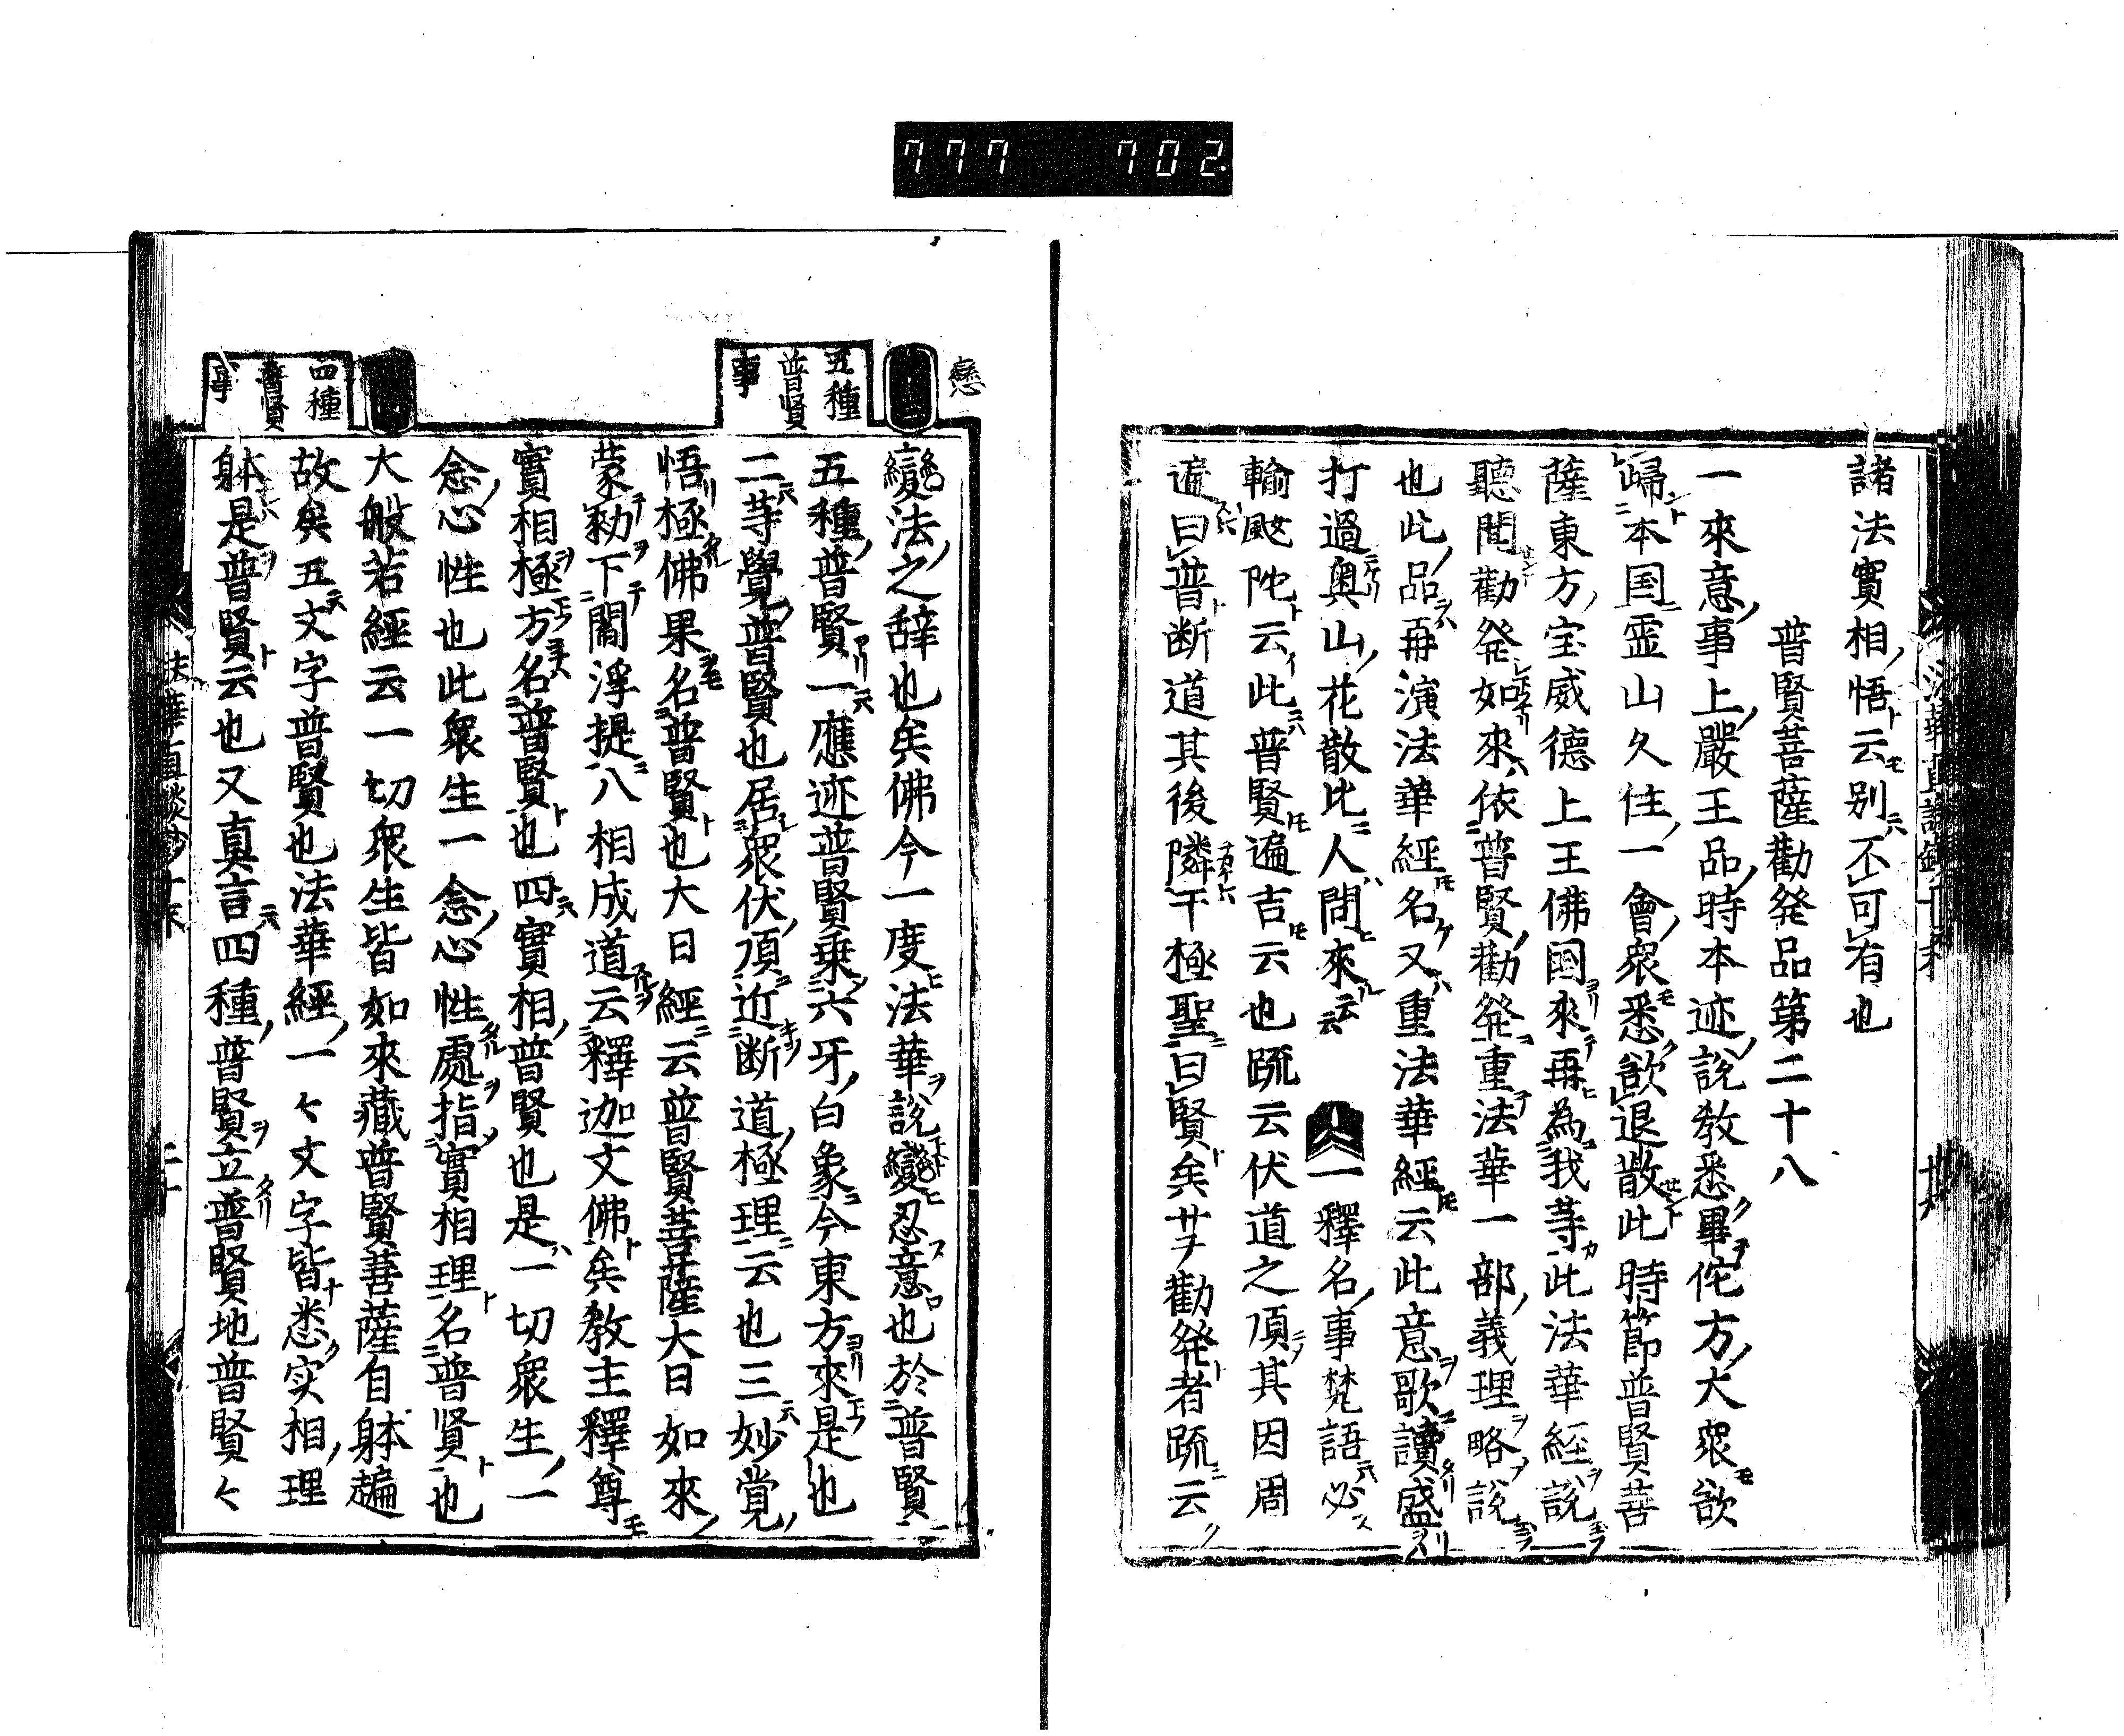 777 702
諸法實相悟云別不可有也
普賢菩薩勸発品第二十八
一來意事上嚴王品時本迹說教悉畢侘方大衆欲
歸本国霊山久住一會衆悉欲退散此時節普賢菩
薩東方宝威德上王佛国來再為我等此法華經說
聽聞勸発如來依普賢勸発重法華一部義理略說
也此品再演法華經名又重法華經云此意歌讀盛
打過奥山花散比人問來云云 一釋名事梵語必
輸颰陀云此普賢遍吉云也疏云伏道之頂其因周
遍曰普断道其後隣于極聖曰賢矣サテ勸発者疏云
戀
戀法之辞也矣佛今一度法華說戀忍意也於普賢
五種普賢一應迹普賢乗六牙白象今東方來是也
二等覺普賢也居衆伏頂近断道極理云也三妙覚
悟極佛果名普賢也大日經云普賢菩薩大日如來
蒙勅下閻浮提八相成道云釋迦文佛矣教主釋尊
實相極方名普賢也四實相普賢也是一切衆生一
念心性也此衆生一念心性處指實相理名普賢也
大般若經云一切衆生皆如來藏普賢菩薩自躰遍
故矣五文字普賢也法華經一々文字皆悉实相理
躰是普賢云也又真言四種普賢立普賢地普賢々
五種
普賢
事
四種
普賢
事